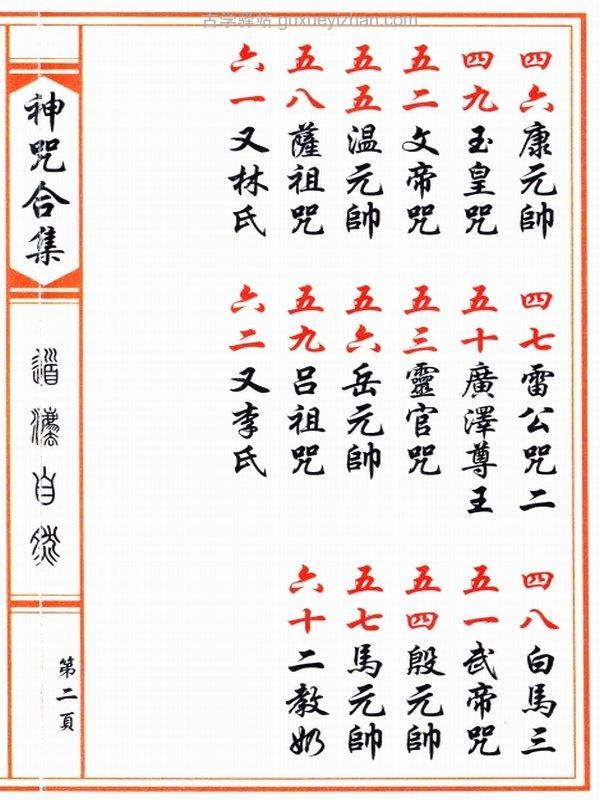 古学驿站 guxueyizhan.com
四六康元帥
四七雷公咒二
四八白馬三
四九玉皇咒
五十廣澤尊王
五一武帝咒
五二文帝咒
五三靈官咒
五四殷元帥
五五溫元帥
五六岳元帥
五七馬元帥
五八薩祖咒
五九呂祖咒
六十二教奶
六一又林氏
六二又李氏
神咒合集
道灋自然
第二頁